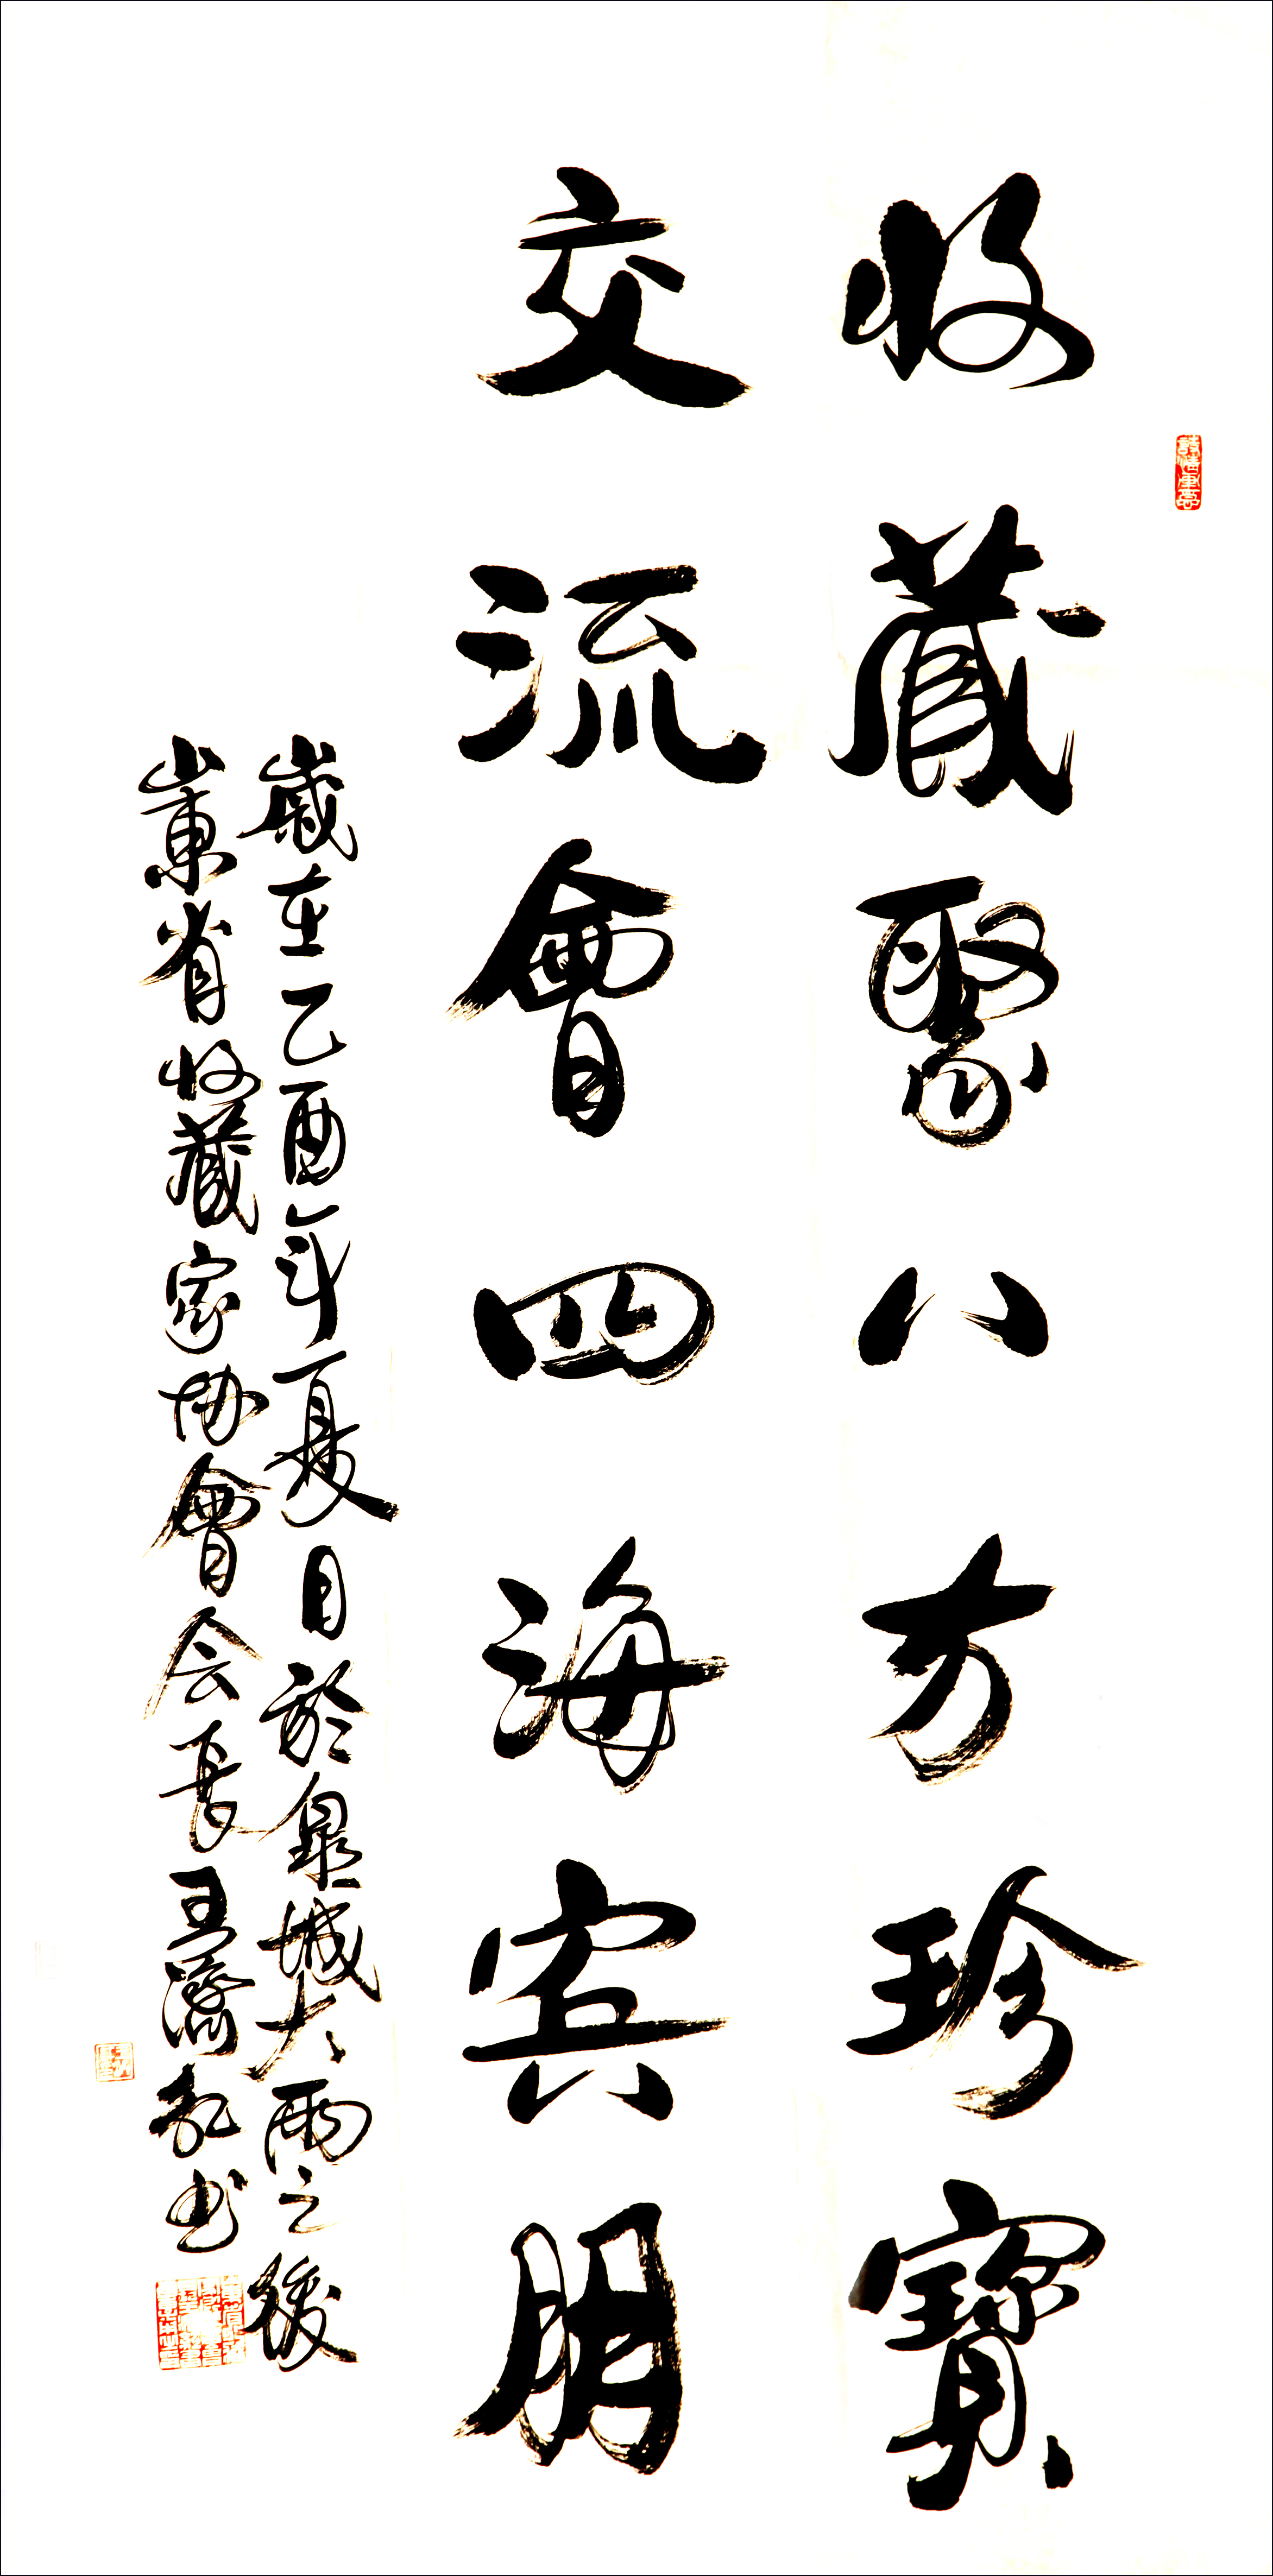 收藏聚八方珍寶
交流會四海宾朋
歲在乙酉年夏日於泉城大雨之後
山東省收藏家协會会長王濟乱书